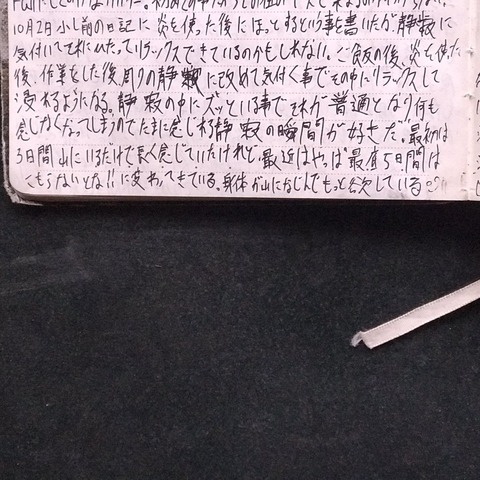 10月2日 少し前の日記に炎を使った後にほっとするという事を書いたが静寂に
気付いてそれに対ってリラックスできているのかもしれない。ご飯の後、炎を使った
後、作業をした後周りの静寂に改めて気付く事でその中にリラックスして
浸れるようになる。静寂の中にズッといる事でそれが普通となり何も
感じなくなってしまうのでたまに感じれる静寂の瞬間が好きだ。最初は
3日間山にいるだけで長く感じていたけれど最近はやっぱ最低5日間は
こもらないとな!!に変わってきている。身体が山になじんでもっと欲している